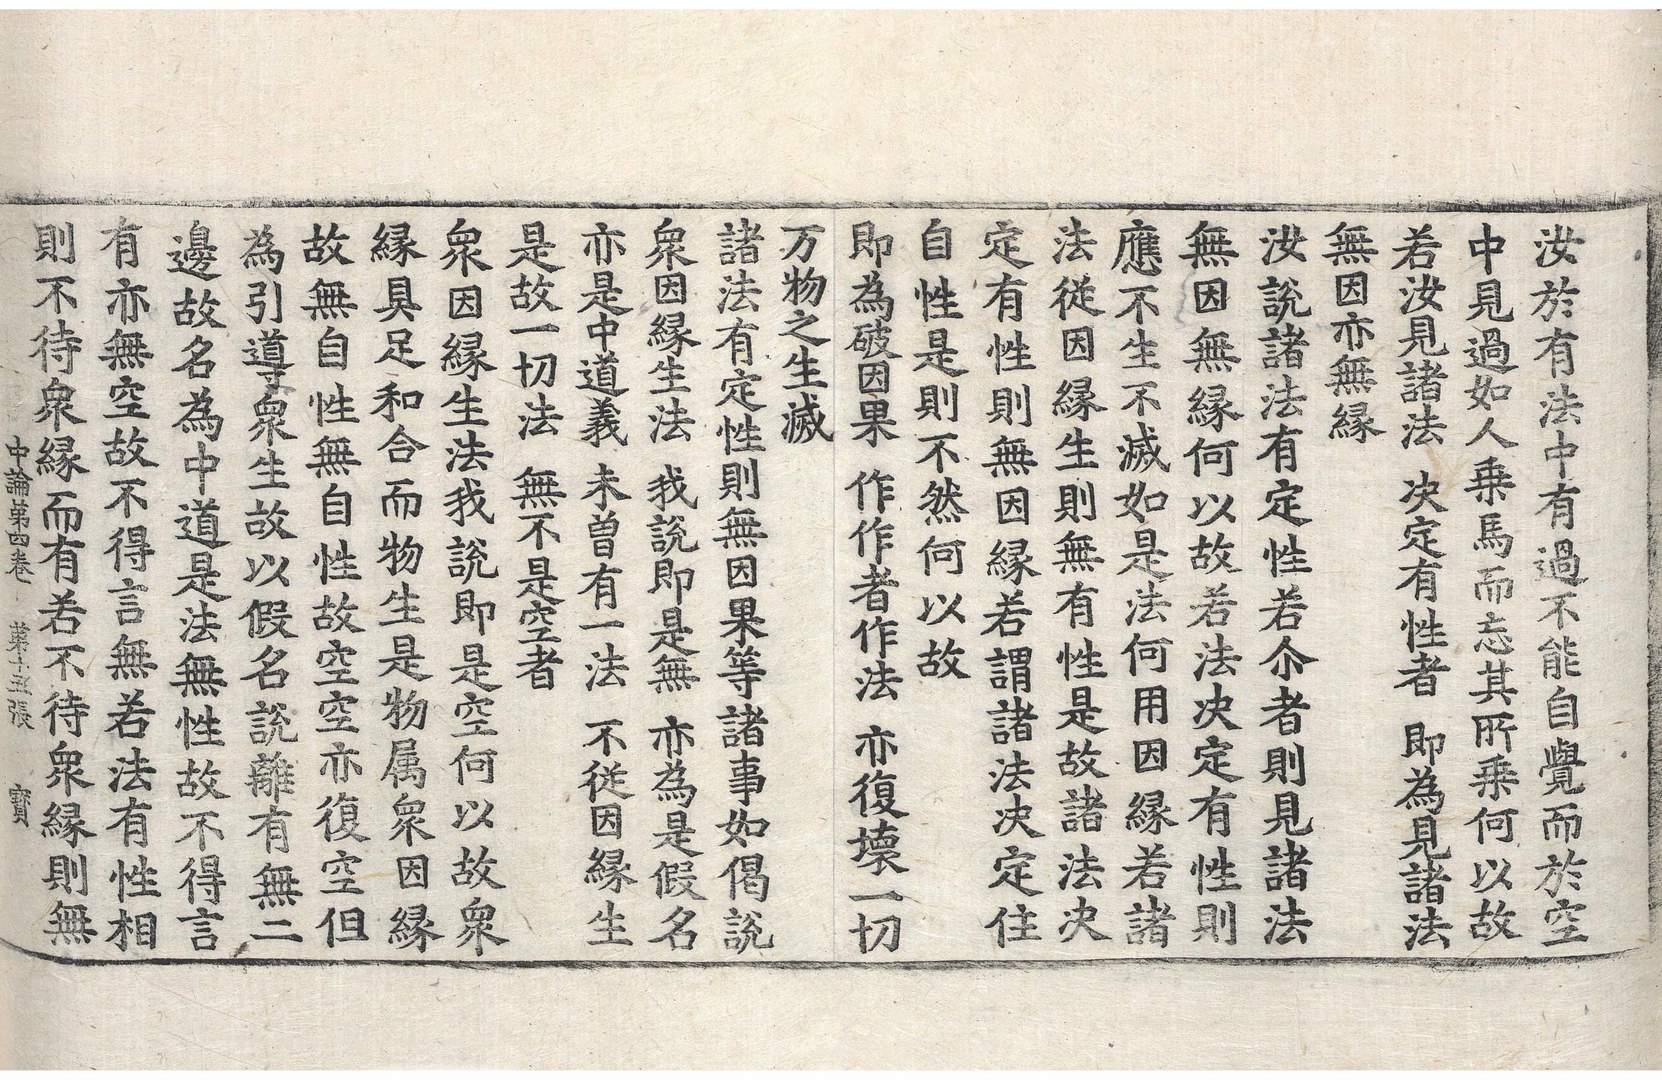 汝於有法中有過不能自覺而於空
中見過如人乗馬而忘其所乗何以故
若汝見諸法 决定有性者 即為見諸法
無因亦無縁
汝說諸法有定性若尒者則見諸法
無因無縁何以故若法决定有性則
應不生不滅如是法何用因縁若諸
法従因縁生則無有性是故諸法决
定有性則無因縁若謂諸法决定住
自性是則不然何以故
即為破因果 作作者作法 亦復壞一切
万物之生滅
諸法有定性則無因果等諸事如偈說
衆因縁生法 我説即是無 亦為是假名
亦是中道義 未曽有一法 不従因縁生
是故一切法 無不是空者
衆因縁生法我説即是空何以故衆
縁具足和合而物生是物属衆因縁
故無自性無自性故空空亦復空但
為引導衆生故以假名說離有無二
邊故名為中道是法無性故不得言
有亦無空故不得言無若法有性相
則不待衆縁而有若不待衆縁則無
中論第四卷 第十五張 寳